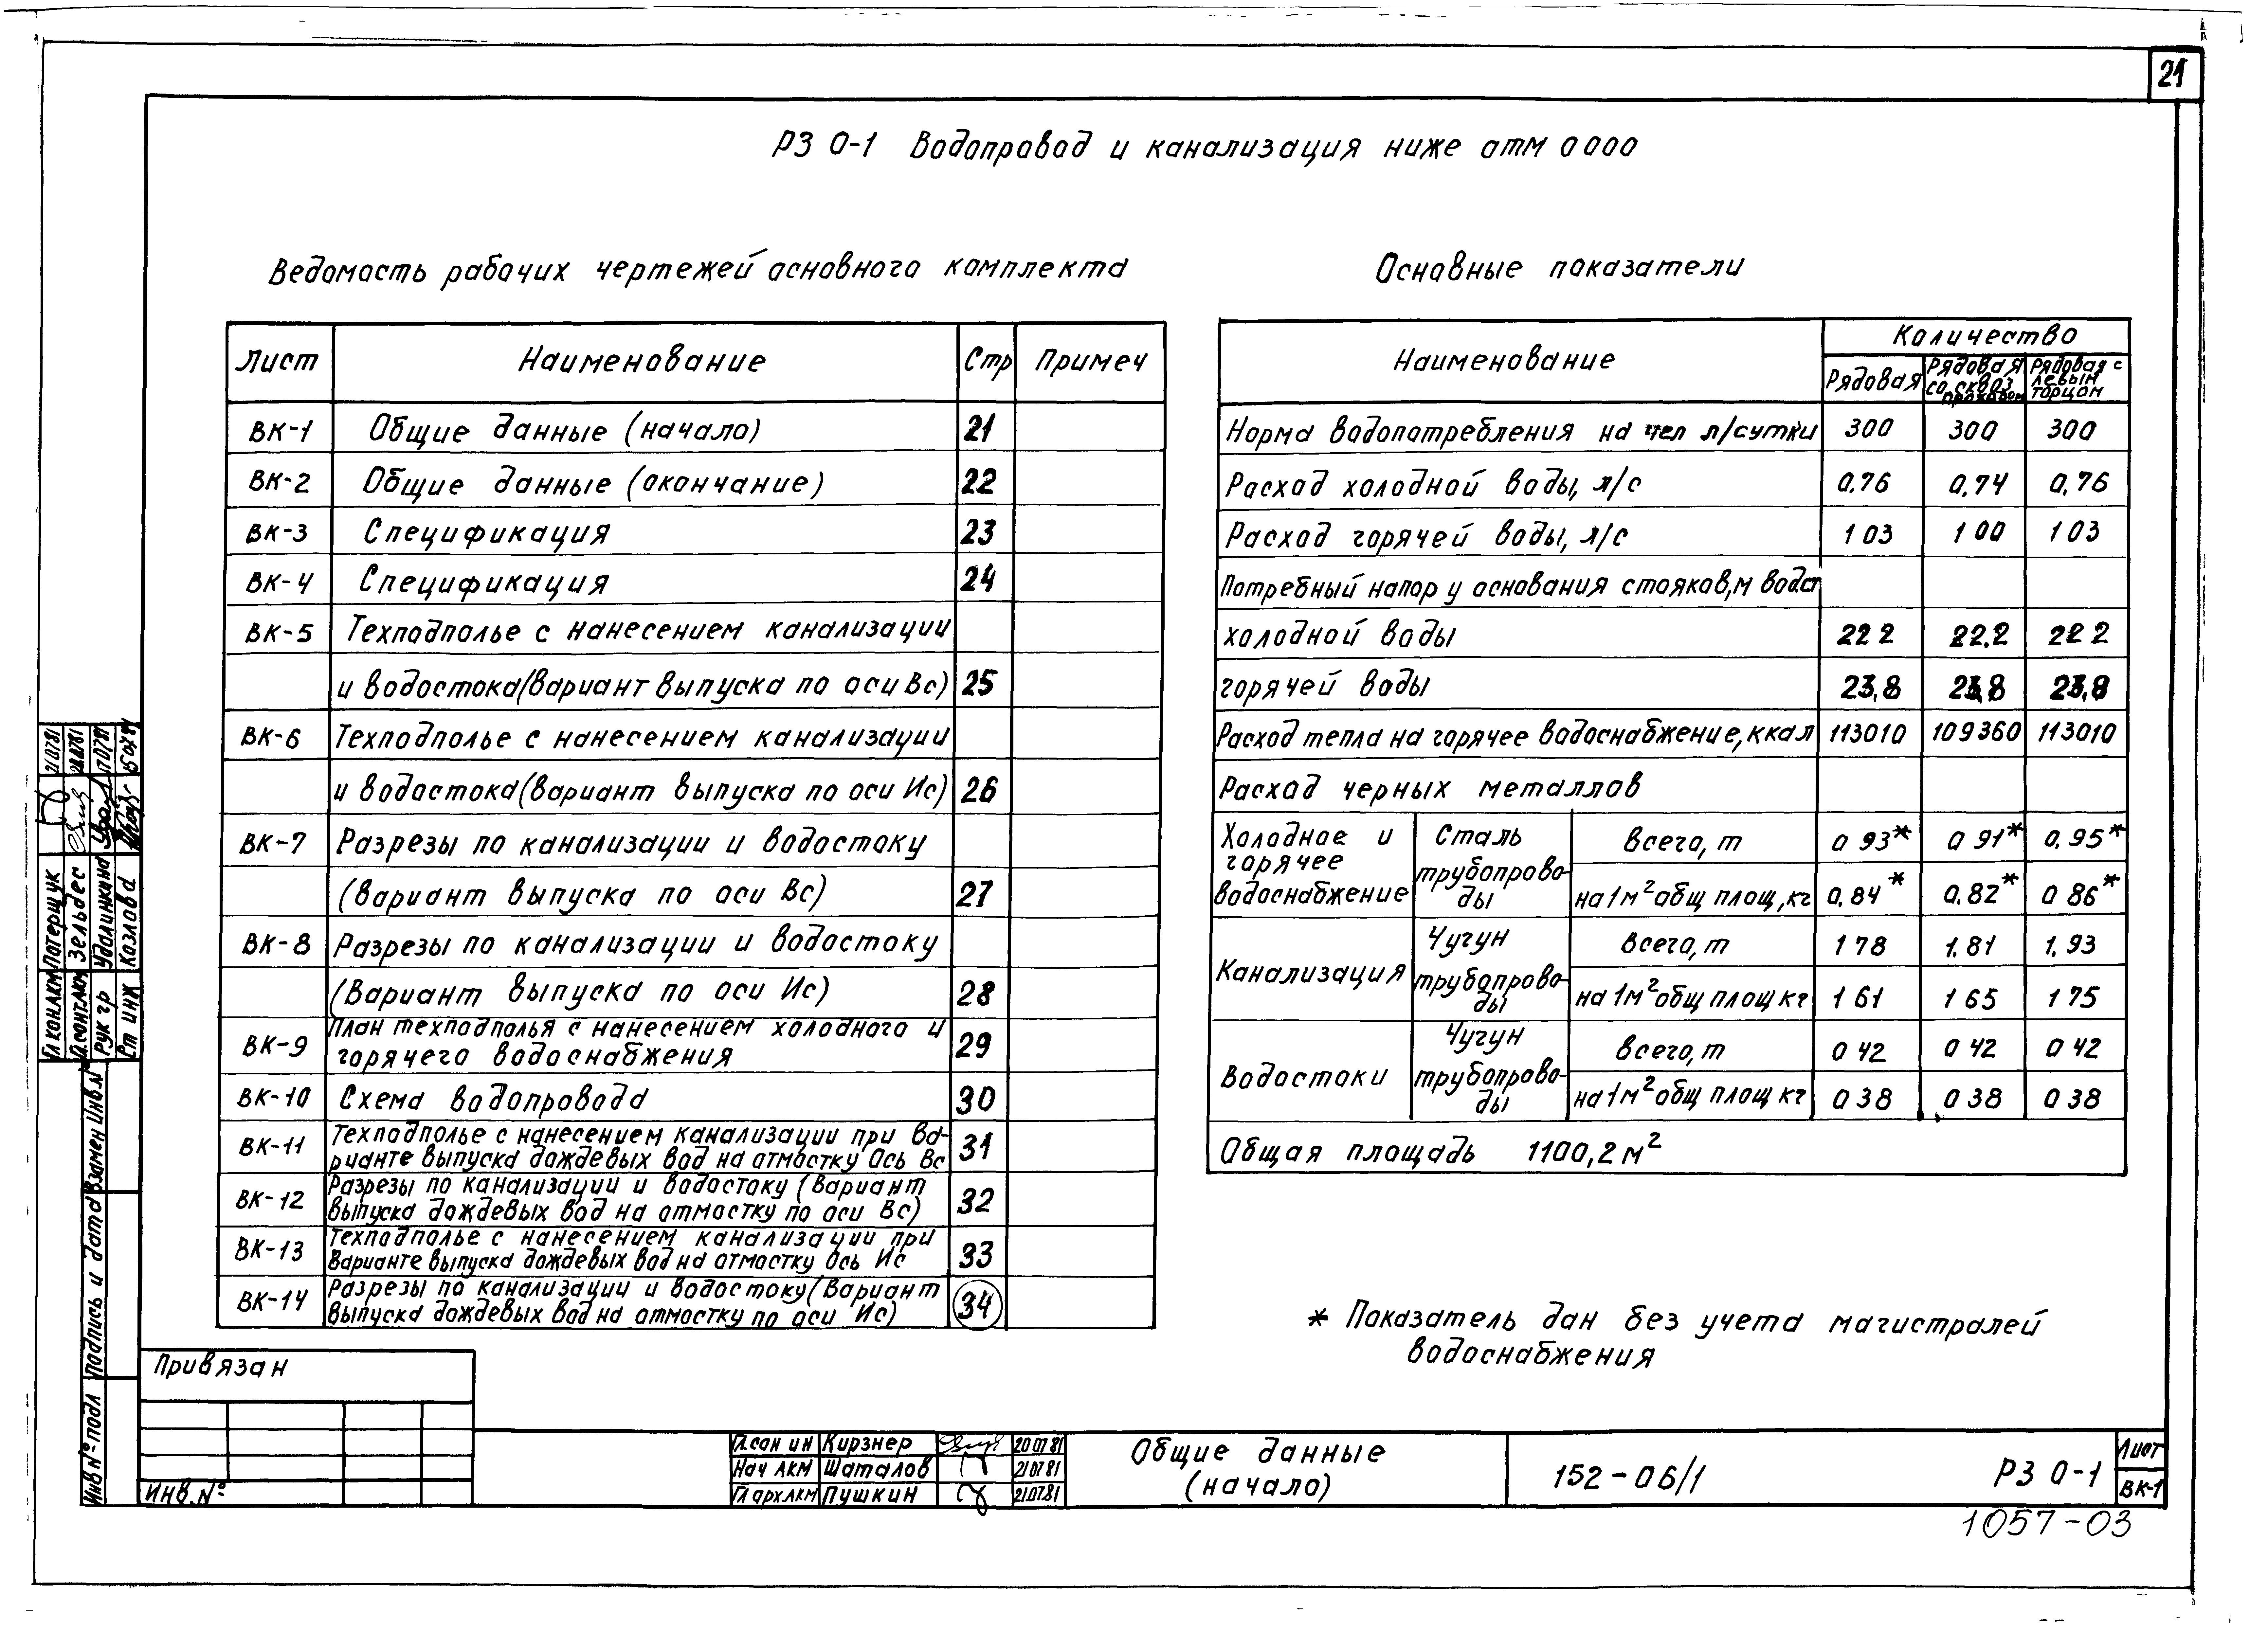 21
РЗ 0-1 Водопровод и канализация ниже отм 0 000
Ведомость рабочих чертежей основного комплекта
Лист Наименование Стр Примеч
ВК-1 Общие данные (начало) 21
ВК-2 Общие данные (окончание) 22
ВК-3 Спецификация 23
ВК-4 Спецификация 24
ВК-5 Техподполье с нанесением канализации
и водостока (вариант выпуска по оси Вс) 25
ВК-6 Техподполье с нанесением канализации
и водостока (вариант выпуска по оси Ис) 26
ВК-7 Разрезы по канализации и водостоку
(вариант выпуска по оси Вс) 27
ВК-8 Разрезы по канализации и водостоку
(Вариант выпуска по оси Ис) 28
ВК-9 План техподполья с нанесением холодного и
горячего водоснабжения 29
ВК-10 Схема водопровода 30
ВК-11 Техподполье с нанесением канализации при ва-
рианте выпуска дождевых вод на отмостку Ось Вс 31
ВК-12 Разрезы по канализации и водостоку (Вариант
выпуска дождевых вод на отмостку по оси Вс) 32
ВК-13 Техподполье с нанесением канализации при
Варианте выпуска дождевых вод на отмостку Ось Ис 33
ВК-14 Разрезы по канализации и водостоку (Вариант
выпуска дождевых вод на отмостку по оси Ис) 34
Основные показатели
Наименование Количество
Рядовая Рядовая со сквоз проходом Рядовая с левым торцом
Норма водопотребления на чел л/сутки 300 300 300
Расход холодной воды, л/с 0,76 0,74 0,76
Расход горячей воды, л/с 1 03 1 00 1 03
Потребный напор у основания стояков, м вод ст
холодной воды 22 2 22,2 22 2
горячей воды 23,8 23,8 23,8
Расход тепла на горячее водоснабжение, ккал 113010 109360 113010
Расход черных металлов
Холодное и горячее водоснабжение Сталь трубопрово-ды Всего, т 0 93* 0 91* 0,95*
на 1 м² общ площ, кг 0,84* 0,82* 0 86*
Канализация Чугун трубопрово-ды Всего, т 1 78 1,81 1,93
на 1 м² общ площ кг 1 61 1 65 1 75
Водостоки Чугун трубопрово-ды Всего, т 0 42 0 42 0 42
на 1 м² общ площ кг 0 38 0 38 0 38
Общая площадь 1100,2 м²
* Показатель дан без учета магистралей
водоснабжения
Гл кон ЛКМ Потерщук 21.07.81
Зельдес
Рук гр Удалинкина 17.07.81
Ст инж Козлова 15 07 81
Взамен Инв №
Подпись и дата
Инв № подл
Привязан
Инв. №
Гл.сан ин Кирзнер 20 07 81
Нач ЛКМ Шаталов 21 07 81
Гл арх ЛКМ Пушкин 21.07.81
Общие данные
(начало)
152-06/1
РЗ 0-1
Лист
ВК-1
1057-03